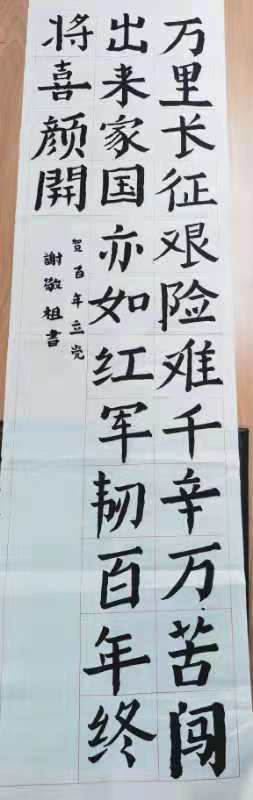 万里长征艰险难千辛万苦闯
出来家国亦如红军韧百年终
将喜颜開
贺百年立党
謝敬祖書